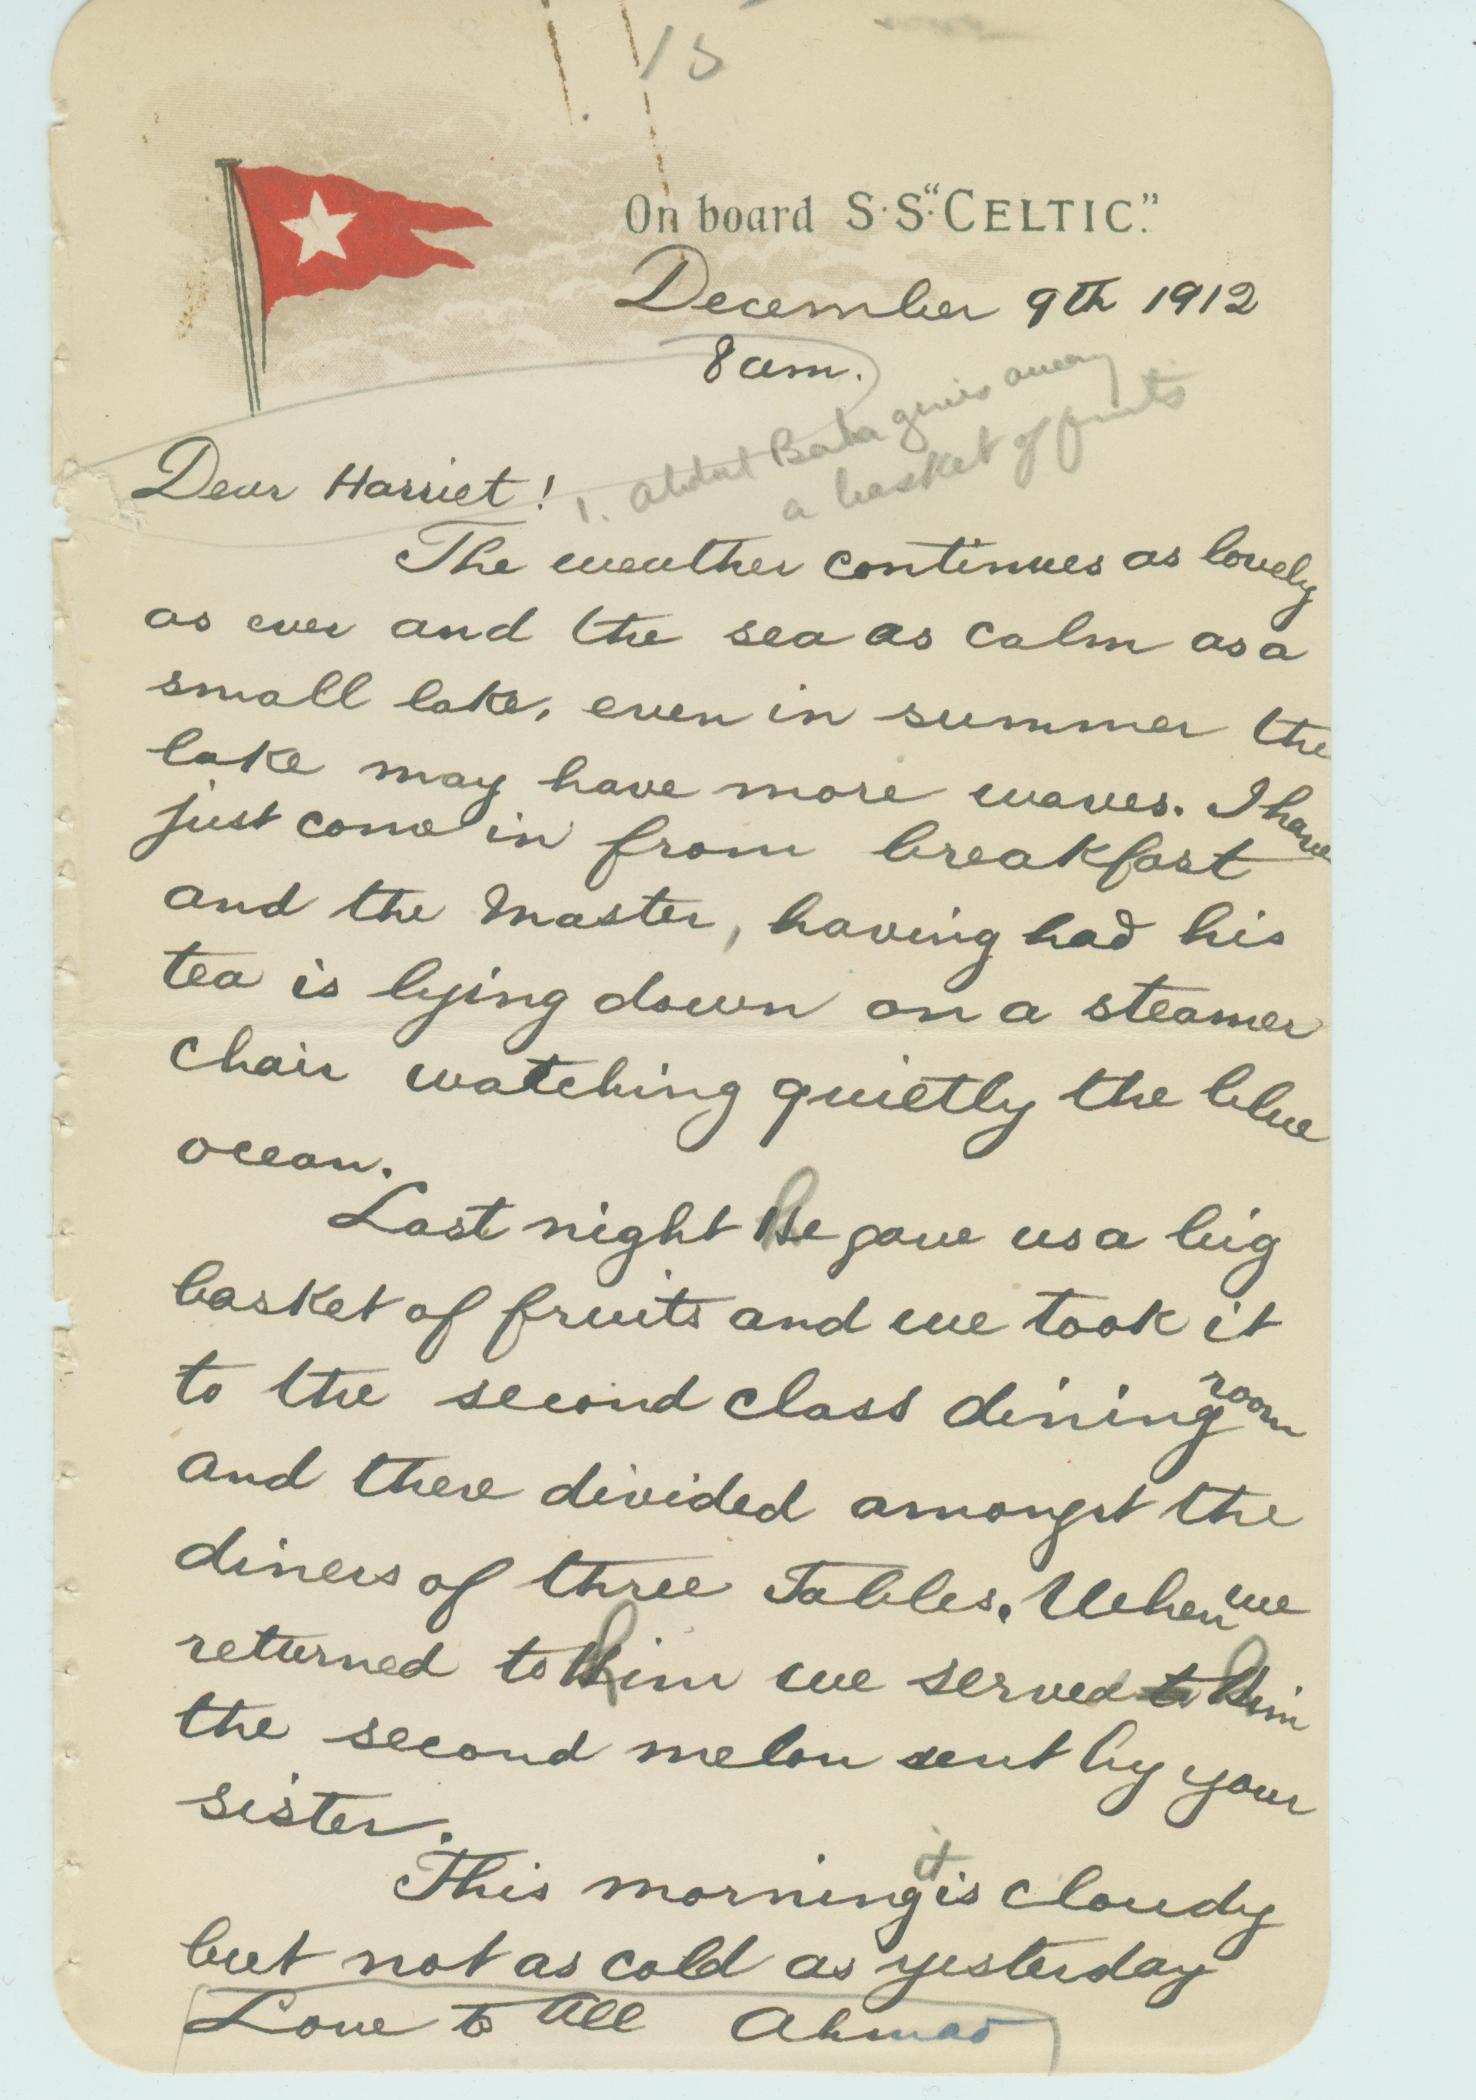 15
On board S·S·"CELTIC."
December 9th 1912
8 am.
1. Abdul Baha gives away
a basket of fruits
Dear Harriet!
The weather continues as lovely
as ever and the sea as calm as a
small lake, even in summer the
lake may have more waves. I have
just come in from breakfast
and the Master, having had his
tea is lying down on a steamer
chair watching quietly the blue
ocean.
Last night He gave us a big
basket of fruits and we took it
to the second class dining room
and there divided amongst the
diners of three Tables. When we
returned to Him we served to Him
the second melon sent by your
sister.
This morning it is cloudy
but not as cold as yesterday
Love to All Ahmad